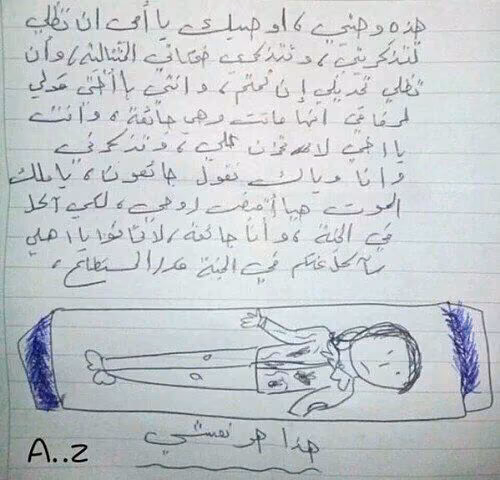 هذه وصيتي، اوصيك يا أمي ان تظلي
تتذكريني، وتتذكري ضحكاتي التالية، وأن
تظلي فراشي إن نمتم، وانتي يا أختي قولي
لرفاقي انها ماتت وهي جائعة، وانت
يا اخي لا تحزن علي، وتذكر أني
وانا وياك نقول جائعون، يا ملك
الموت هيا أقبض روحي، لكي آكل
في الجنة، وأنا جائعة، لا تخافوا يا اهلي
سآكل عنكم في الجنة قدر المستطاع،
هذا هو نعشي
A..Z